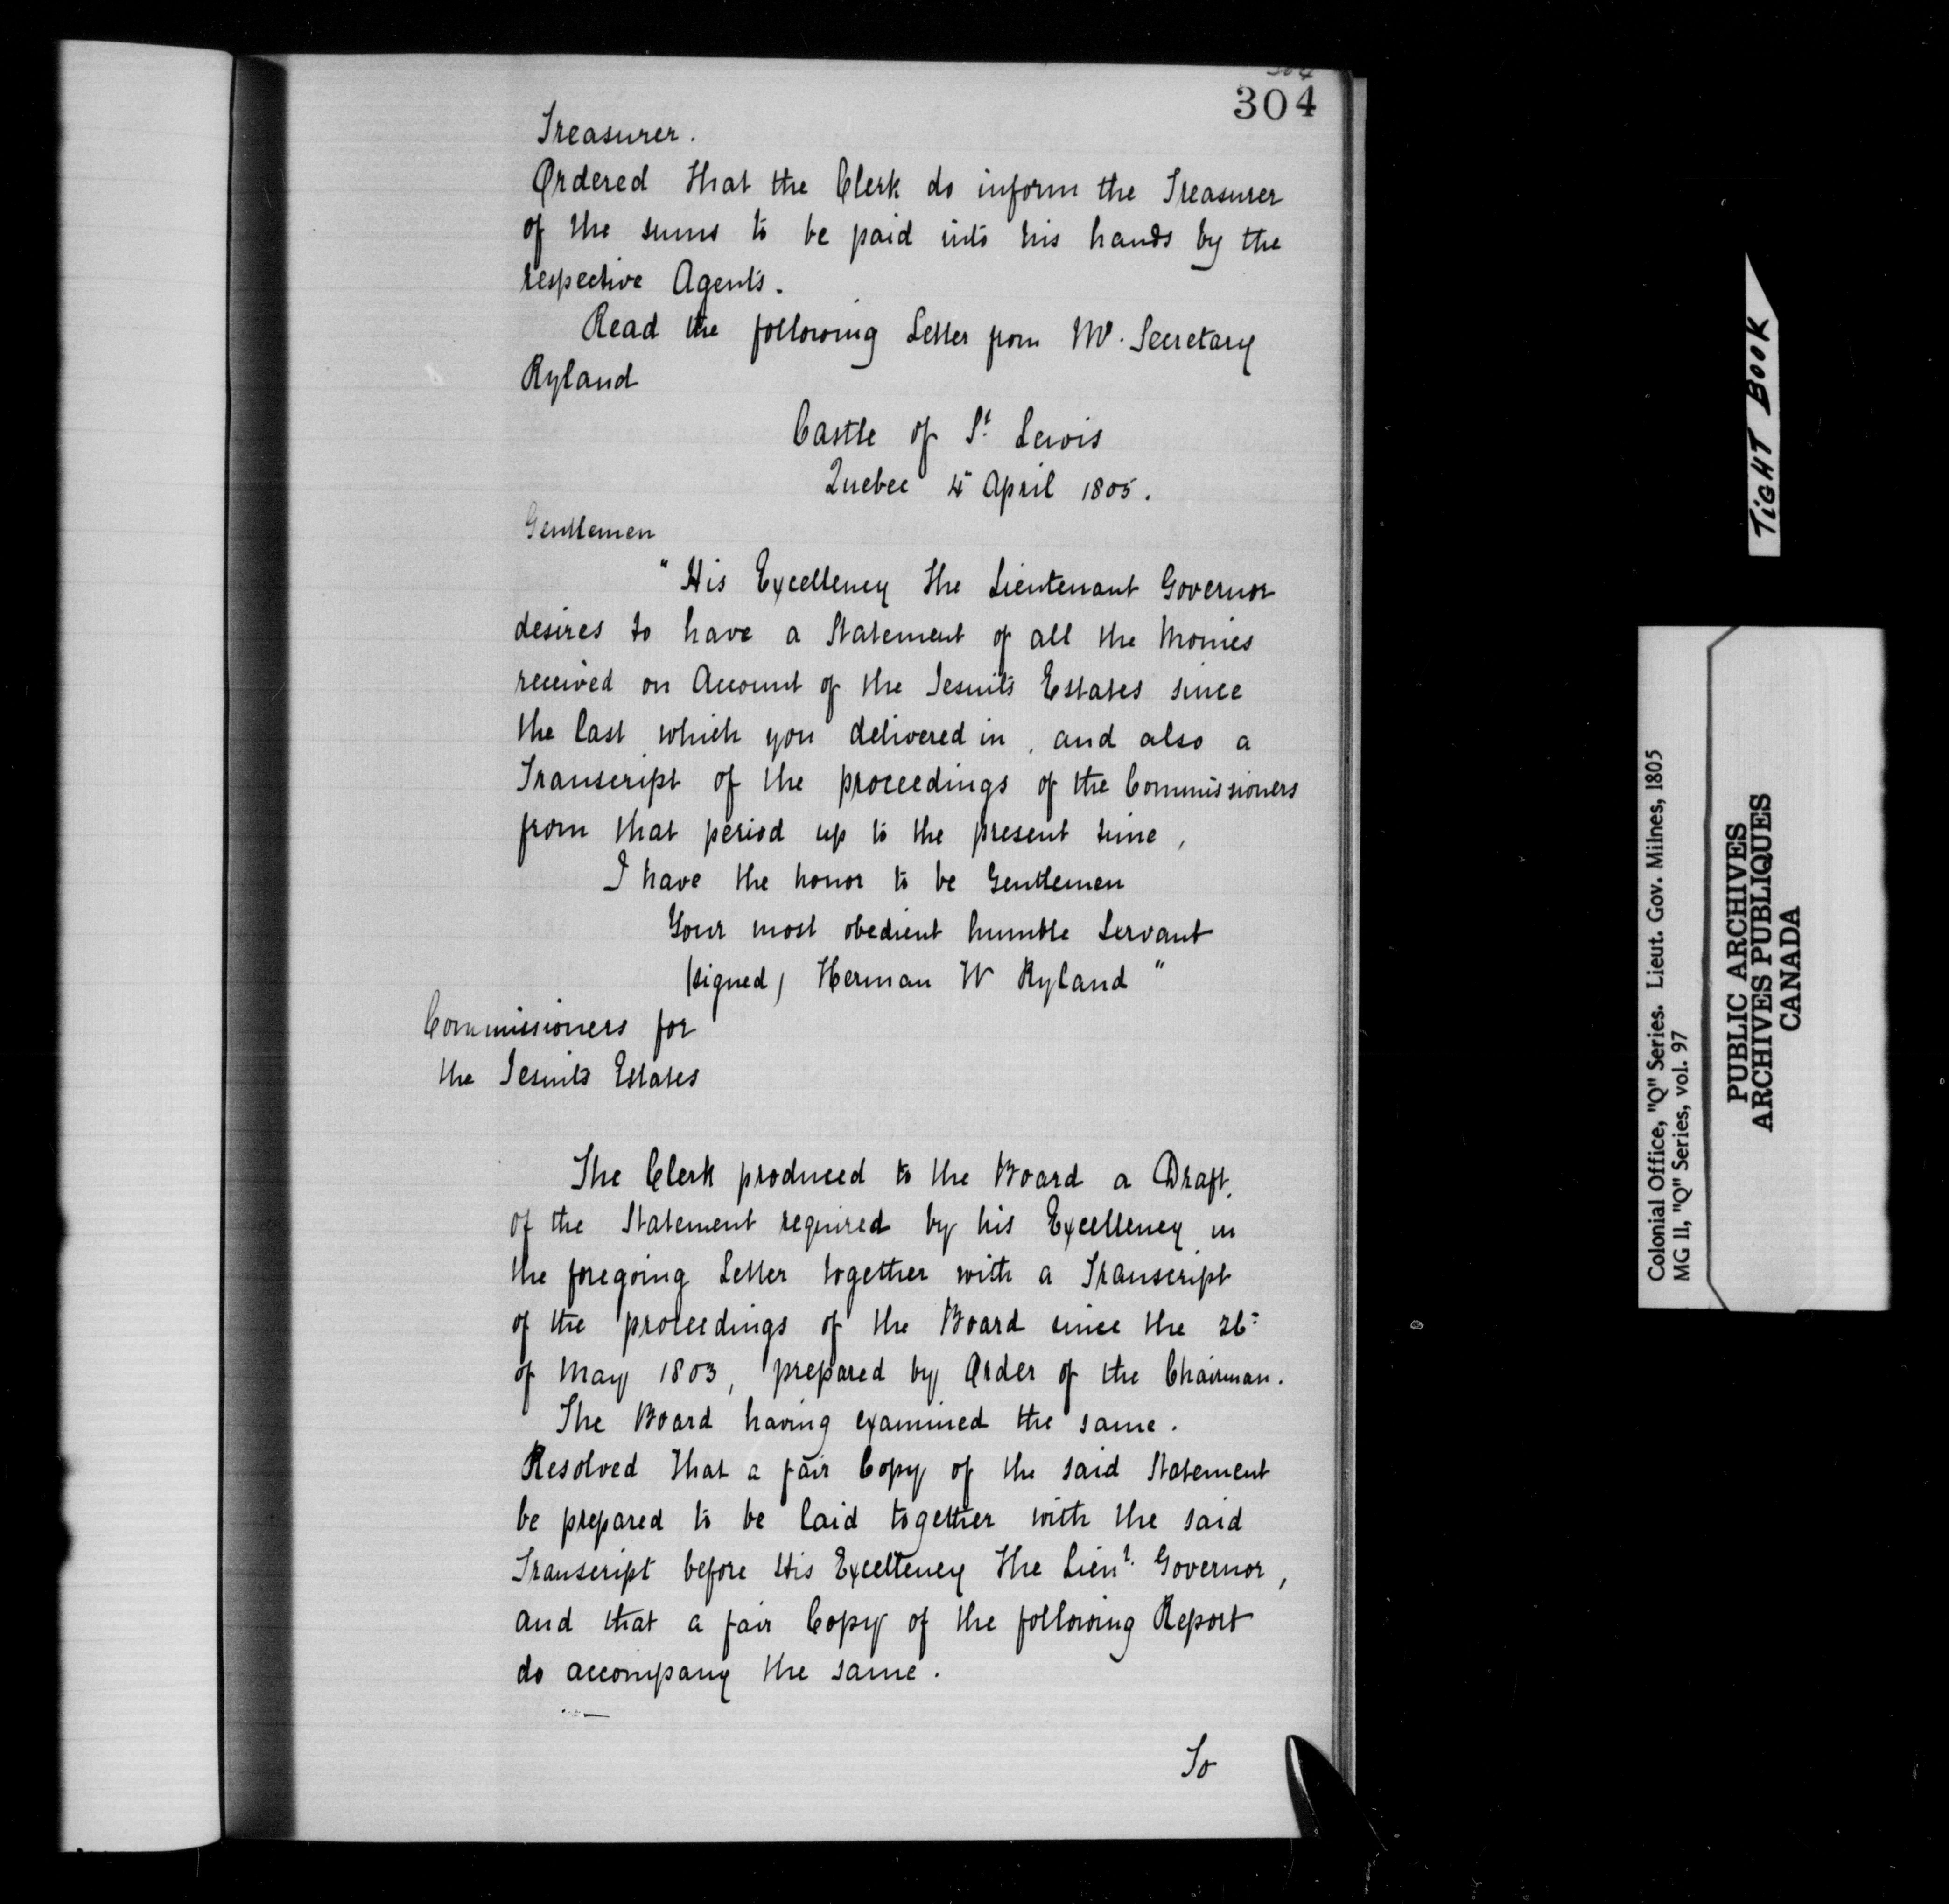 304
Treasurer.
Ordered that the Clerk do inform the Treasurer
of the sums to be paid into his hands by the
respective Agents.
Read the following Letter from Mr. Secretary
Ryland
Castle of St. Lewis
Quebec 4 April 1805.
Gentlemen
"His Excellency the Lieutenant Governor
desires to have a Statement of all the Monies
received on Account of the Jesuits Estates since
the last which you delivered in, and also a
Transcript of the proceedings of the Commissioners
from that period up to the present time,
I have the honor to be Gentlemen
Your most obedient humble Servant
(signed) Herman W Ryland"
Commissioners for
the Jesuits Estates
The Clerk produced to the Board a Draft
of the Statement required by his Excellency in
the foregoing Letter together with a Transcript
of the proceedings of the Board since the 26
of May 1803, prepared by Order of the Chairman.
The Board having examined the same.
Resolved that a fair Copy of the said Statement
be prepared to be laid together with the said
Transcript before His Excellency the Lieut. Governor,
and that a fair Copy of the following Report
do accompany the same.
To
TIGHT BOOK
Colonial Office, "Q" Series. Lieut. Gov. Milnes, 1805
MG 11, "Q" Series, vol. 97
PUBLIC ARCHIVES
ARCHIVES PUBLIQUES
CANADA